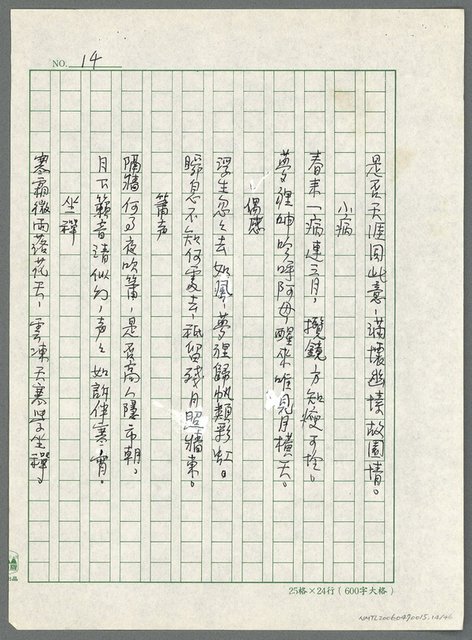 NO. 14
是否天涯同此意，滿壞幽情故園情。
小病
春来一病連三月，攬鏡方知瘦可怜。
夢裡呻吟呼阿母，醒來唯見月橫天。
偶感
浮生忽々去如風，夢裡歸帆類彩虹。
瞬息不知何處去，祗留殘月照牆東。
簫声
隔牆何事夜吹簫，是否高人隱市朝。
月下簫音清似幻，声々如訴伴寒宵。
坐禪
寒霜微雨落花天，雲凍天寒学坐禪。
25格×24行（600字大格）
NMTL20060490015.14/46